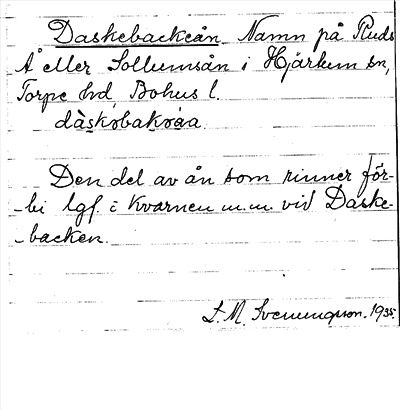 Daskebackeån. Namn på Ruds
Å eller Sollumsån i Hjärtum sn,
Torpe hd, Bohus l.
dàskəbakəå̀a
Den del av ån som rinner för-
-bi lgf. i Kvarnen m.m. vid Daske-
-backen.
S. M. Svenungsson. 1935.